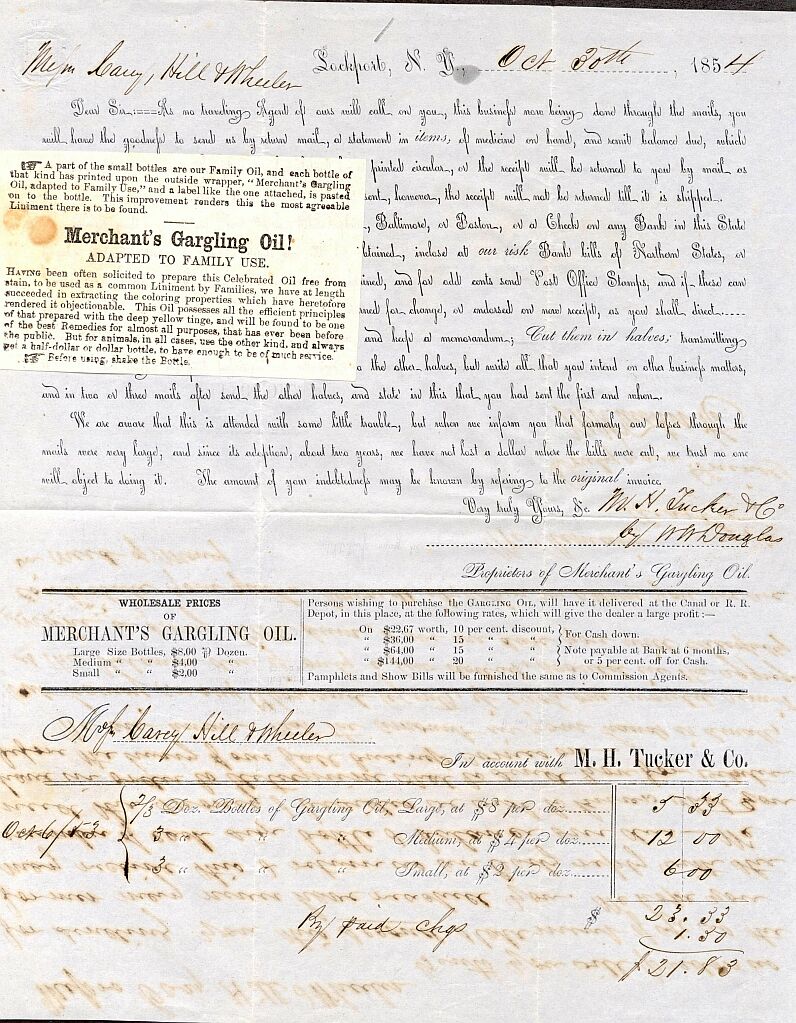 Lockport, N. Y., Oct 30th, 1854
Mess Carey, Hill & Wheeler
Dear Sir:—As no traveling Agent of ours will call on you, this business now being done through the mails, you
will have the goodness to send us by return mail, a statement in items, of medicine on hand, and remit balance due, which
printed circular, or the receipt will be returned to you by mail as
sent, however, the receipt will not be returned till it is shipped.
Baltimore, or Boston, or a Check on any Bank in this State
btained, inclose at our risk Bank bills of Northern States, or
ined, and for odd cents send Post Office Stamps, and if these can
for change, or endorsed on new receipt, as you shall direct.....
and keep a memorandum; Cut them in halves; transmitting
the other halves, but write all that you intend on other business matters,
and in two or three mails after send the other halves, and state in this that you had sent the first and when.
We are aware that this is attended with some little trouble, but when we inform you that formerly our losses through the
mails were very large, and since its adoption, about two years, we have not lost a dollar where the bills were cut, we trust no one
will object to doing it. The amount of your indebtedness may be known by refering to the original invoice.
Very truly Yours, &c. M. H. Tucker & Co
by W W Douglas
Proprietors of Merchant's Gargling Oil.
A part of the small bottles are our Family Oil, and each bottle of
that kind has printed upon the outside wrapper, "Merchant's Gargling
Oil, adapted to Family Use," and a label like the one attached, is pasted
on to the bottle. This improvement renders this the most agreeable
Liniment there is to be found.
Merchant's Gargling Oil!
ADAPTED TO FAMILY USE.
HAVING been often solicited to prepare this Celebrated Oil free from
stain, to be used as a common Liniment by Families, we have at length
succeeded in extracting the coloring properties which have heretofore
rendered it objectionable. This Oil possesses all the efficient principles
of that prepared with the deep yellow tinge, and will be found to be one
of the best Remedies for almost all purposes, that has ever been before
the public. But for animals, in all cases, use the other kind, and always
get a half-dollar or dollar bottle, to have enough to be of much service.
Before using, shake the Bottle.
WHOLESALE PRICES
OF
MERCHANT'S GARGLING OIL.
Large Size Bottles, $8,00 per Dozen.
Medium " " $4,00 "
Small " " $2,00 "
Persons wishing to purchase the GARGLING OIL, will have it delivered at the Canal or R. R.
Depot, in this place, at the following rates, which will give the dealer a large profit:—
On $22,67 worth, 10 per cent. discount, } For Cash down.
" $36,00 " 15 " "
" $64,00 " 15 " " } Note payable at Bank at 6 months,
" $144,00 " 20 " " or 5 per cent. off for Cash.
Pamphlets and Show Bills will be furnished the same as to Commission Agents.
Mess Carey Hill & Wheeler
In account with M. H. Tucker & Co.
2/3 Doz. Bottles of Gargling Oil, Large, at $8 per doz. 5 33
Oct 6/53 3 " " " Medium, at $4 per doz. 12 00
3 " " " Small, at $2 per doz. 6 00
23.33
By paid chgs 1.50
$21.83